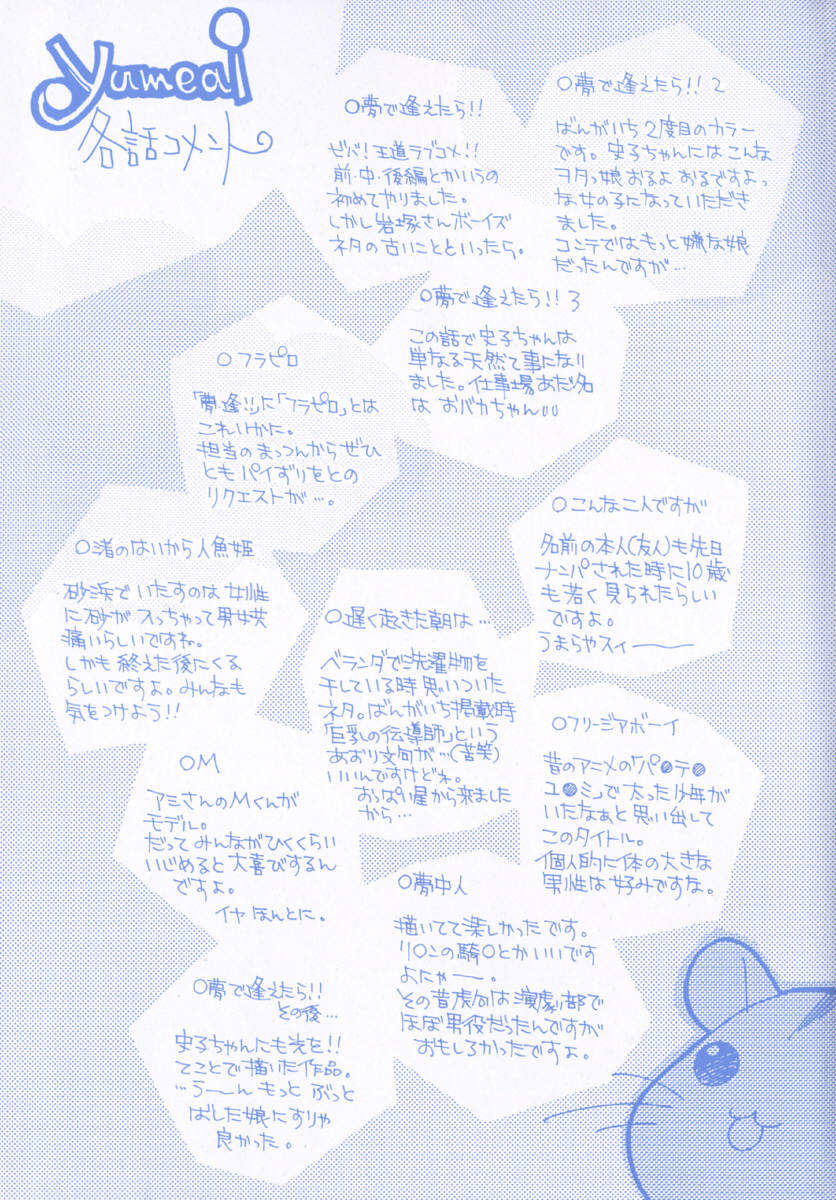 yumeai
各話コメント
○夢で逢えたら!!
ビバ!王道ラブコメ!!
前・中・後編とかいうの
初めてやりました。
しかし岩塚さんボーイズ
ネタの古いことといったら。
○夢で逢えたら!!2
ばんがいち2度目のカラー
です。史子ちゃんにはこんな
ヲタっ娘おるよおるですよっ
な女の子になっていただき
ました。
コンテではもっと嫌な娘
だったんですが…
○夢で逢えたら!!3
この話で史子ちゃんは
単なる天然て事になり
ました。仕事場あだ名
はおバカちゃん
○フラピロ
「夢・逢!!」に「フラピロ」とは
これいかに。
担当のまっつんからぜひ
ともパイずりをとの
リクエストが…。
○こんな二人ですが
名前の本人(友人)も先日
ナンパされた時に10歳
も若く見られたらしい
ですよ。
うまらやスィーーー
○渚のはいから人魚姫
砂浜でいたすのは女性
に砂が入っちゃって男女共
痛いらしいですね。
しかも終えた後にくる
らしいですよ。みんなも
気をつけよう!!
○遅く起きた朝は…
ベランダで洗濯物を
干している時思いついた
ネタ。ばんがいち掲載時
「巨乳の伝導師」という
あおり文句が…(苦笑)
いいんですけどね。
おっぱい屋から来ました
から…
○フリージアボーイ
昔のアニメの「パ●テ●
ユ●ミ」で太った少年が
いたなぁと思い出して
このタイトル。
個人的に体の大きな
男性は好みですな。
○M
アミさんのMくんが
モデル。
だってみんながひくくらい
いじめると大喜びするん
ですよ。
イヤほんとに。
○夢中人
描いてて楽しかったです。
リ○ンの騎○とかいいです
よにゃー。
その昔虎向は演劇部で
ほぼ男役だったんですが
おもしろかったですよ。
○夢で逢えたら!!
その後…
史子ちゃんにも光を!!
てことで描いた作品。
…うーんもっとぶっと
ばした娘にすりゃ
良かった。